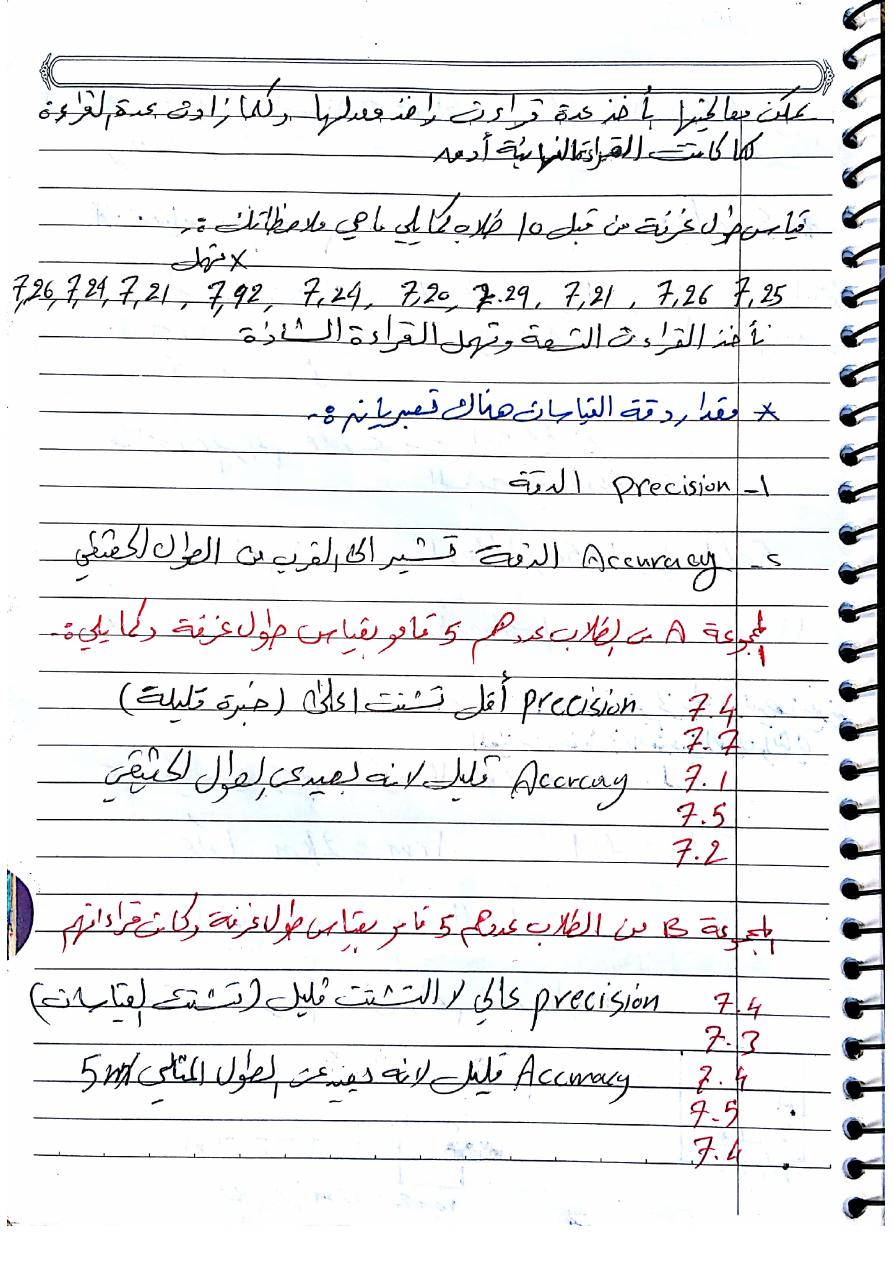 يمكن معالجتها بأخذ عدة قراءات واخذ معدلها وكلما زادت عدة القراءة
كلما كانت القراءة النهائية أدق
قياس طول غرفة من قبل 10 طلاب كما يلي ما هي ملاحظاتك :-
× تهمل
7,26, 7,24, 7,21, 7,92, 7,24, 7,20, 7.29, 7,21, 7,26 7,25
نأخذ القراءات التسعة وتهمل القراءة الشاذة
* مقدار دقة القياسات هناك تعبيران :-
١- precision الدقة
٢- Accuracy الدقة تشير الى القرب من الطول الحقيقي
المجموعة A من الطلاب عددهم 5 قامو بقياس طول غرفة وكما يلي :-
7.4 precision أقل تشتت اعلى (خبرة قليلة)
7.7
7.1 Accrcay قليل لانه بعيد عن الطول الحقيقي
7.5
7.2
المجموعة B من الطلاب عددهم 5 قامو بقياس طول غرفة وكانت قراءاتهم
7.4 precision عالي لا التشتت قليل (تشتت القياسات)
7.3
7.4 Accuracy قليل لانه بعيد عن الطول المثالي 5m
7.5
7.4